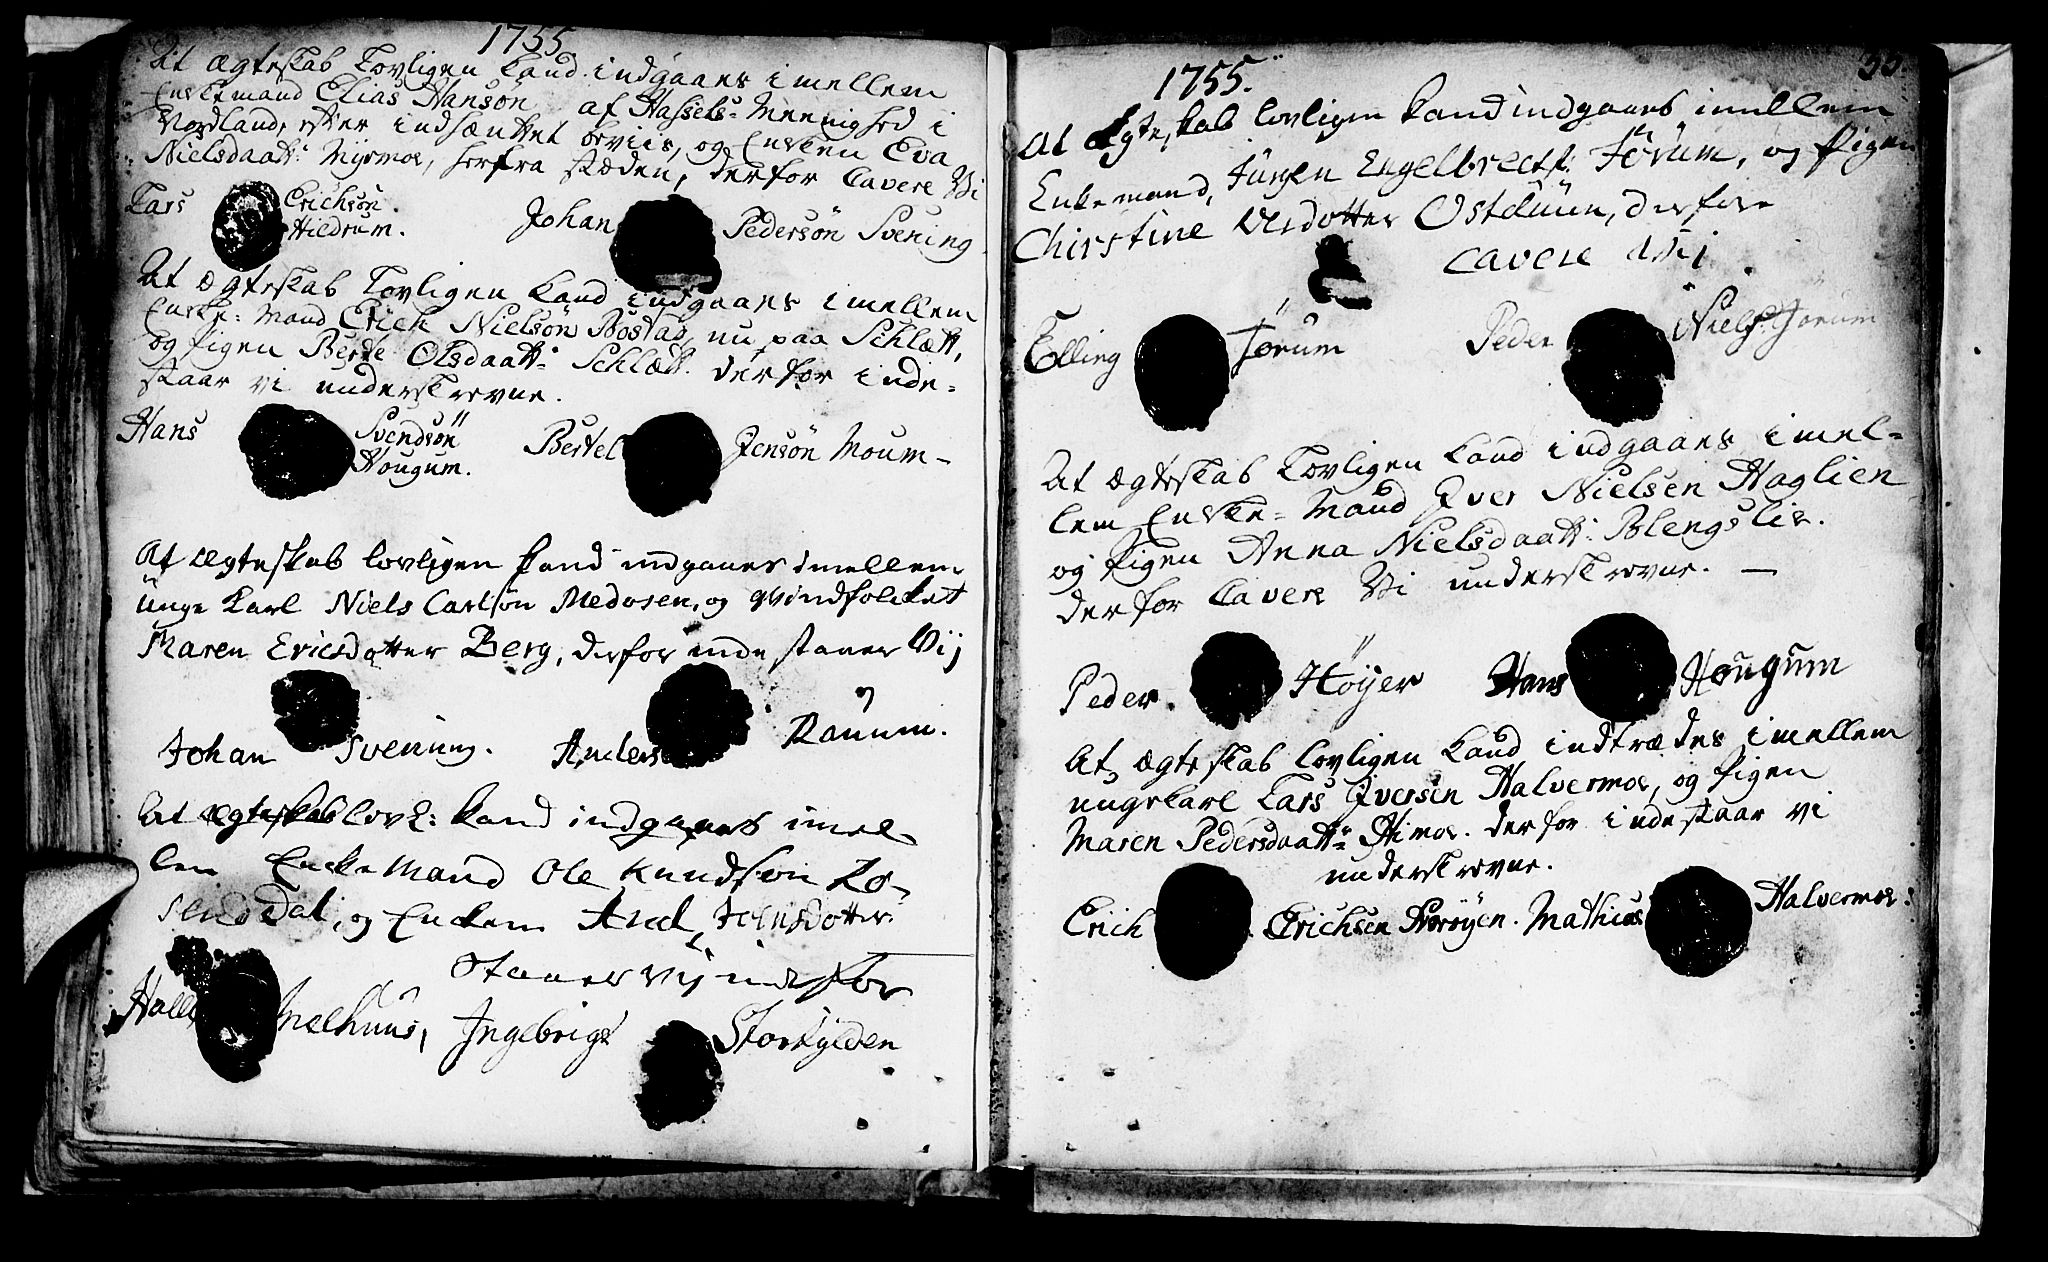 1755
At ægteskab Lovligen kand indgaaes imellem
Enkemand Elias Hansön af Hassels-Meenighed i
Nordland, efter indsændtet beviis, og Enken Eva
Nielsdaatt: Myrmoe, herfra stæden, derfor Cavere Vi
Lars Erichsön Hildrum. Johan Pedersön Svening
At ægteskab Lovligen kand indgaaes imellem
Enke-Mand Erich Nielsön Bostad, nu paa Schlætt,
og Pigen Berte Olsdaatt: Schlætt. derfor inde-
staar vi underskrevne.
Hans Svendsön Hougum. Bertel Jensön Moum-
At ægteskab lovligen kand indgaaes imellem
unge Karl Niels Carlsön Medosen, og qvindfolcket
Maren Ericsdotter Berg, derfor inde staaer Vij
Johan Svening. Anders Ranum.
At ægteskab lovl: kand indgaaes imel-
len Encke Mand Ole Knudsön Ro-
sendal, og Encken Jensdotter
staaer vij inde for
Hall Melhuus, Ingebrigt Storkylden
35.
1755.
At Egteskab lovligen kand indgaaes imellem
Enkemand, Jürgen Engelbrectß: Jörum, og Pigen
Chirstine dotter Ostduun, derfore
cavere Vij
Elling Jörum Peder Nielß: Jörum
At ægteskab Lovligen kand indgaaes imel-
lem Enke-Mand Iver Nielsen Haglien
og Pigen Anna Nielsdaatt: Blengslie.
derfor Cavere Vi underskrevne. —
Peder. Höyer Hans Hougum
At ægteskab lovligen kand indtrædes imellem
ungekarl Lars Iversen Halvermoe, og Pigen
Maren Pedersdaatt: Himoe. derfor indestaar vi
underskrevne.
Erich Erichsen Mathias Halvermoe: